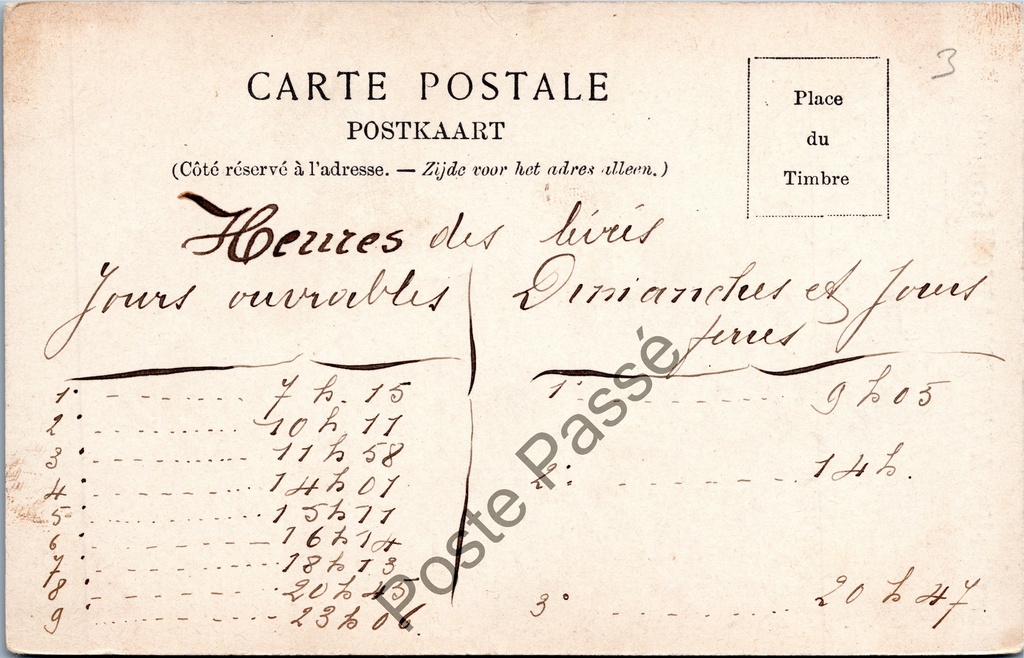 3
CARTE POSTALE
POSTKAART
(Côté réservé à l'adresse. — Zijde voor het adres alleen.)
Place
du
Timbre
Heures des
Jours ouvrables
1° 7 h. 15
2° 10 h 11
3° 11 h 58
4° 14 h 01
5° 15 h 11
6° 16 h 14
7° 18 h 13
8° 20 h 45
9 23 h 06
Dimanches et Jours
feries
1° 9 h 05
2° 14 h.
3° 20 h 47
Poste Passé